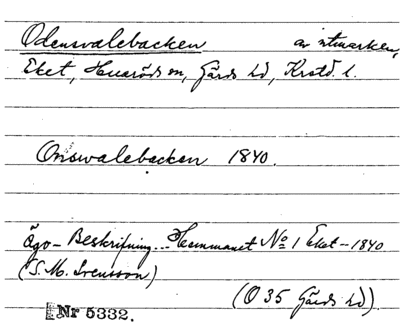 Odensvalebacken av utmarken,
Eket, Huaröds sn, Gärds hd, Krstd. l.
Onsvalebacken 1840.
Ägo-Beskrifning... Hemmanet No 1 Eket - 1840
(S. M. Svensson)
(O 35 Gärds hd).
Nr 5332.